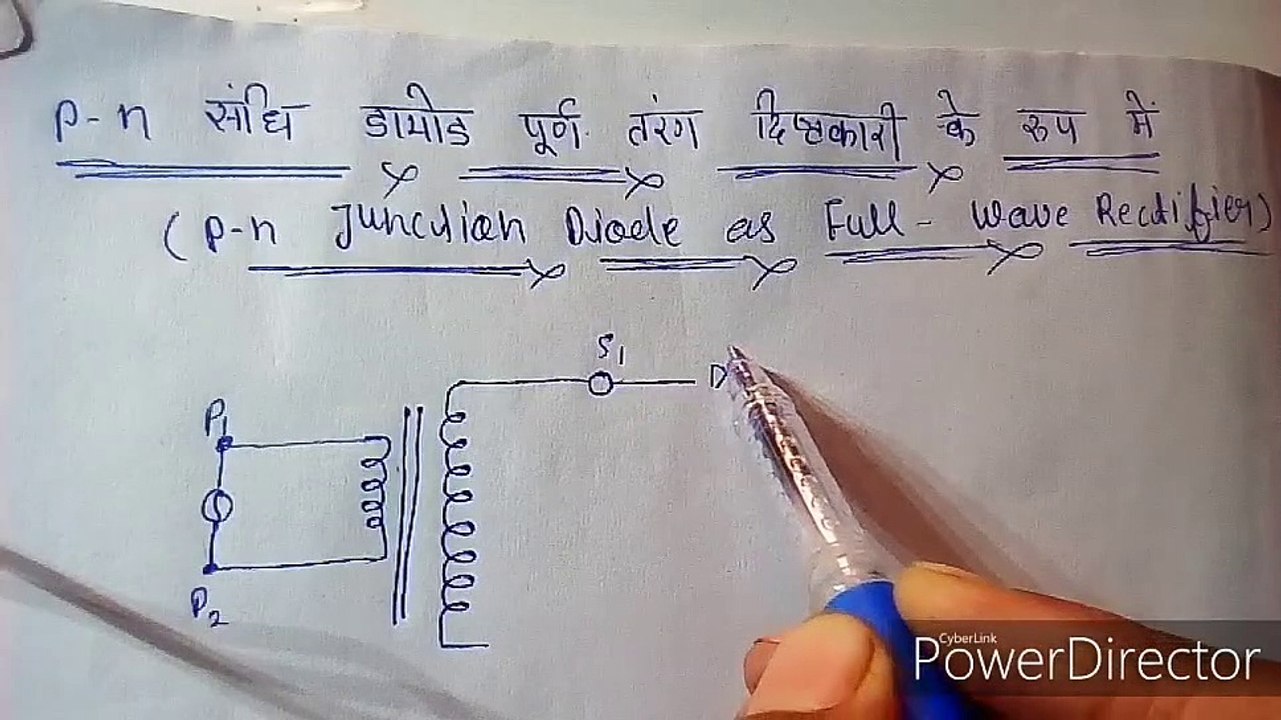 P-n संधि डायोड पूर्ण तरंग दिष्टकारी के रूप में
(P-n Junction Diode as Full-Wave Rectifier)
S1
D
P1
P2
CyberLink
PowerDirector